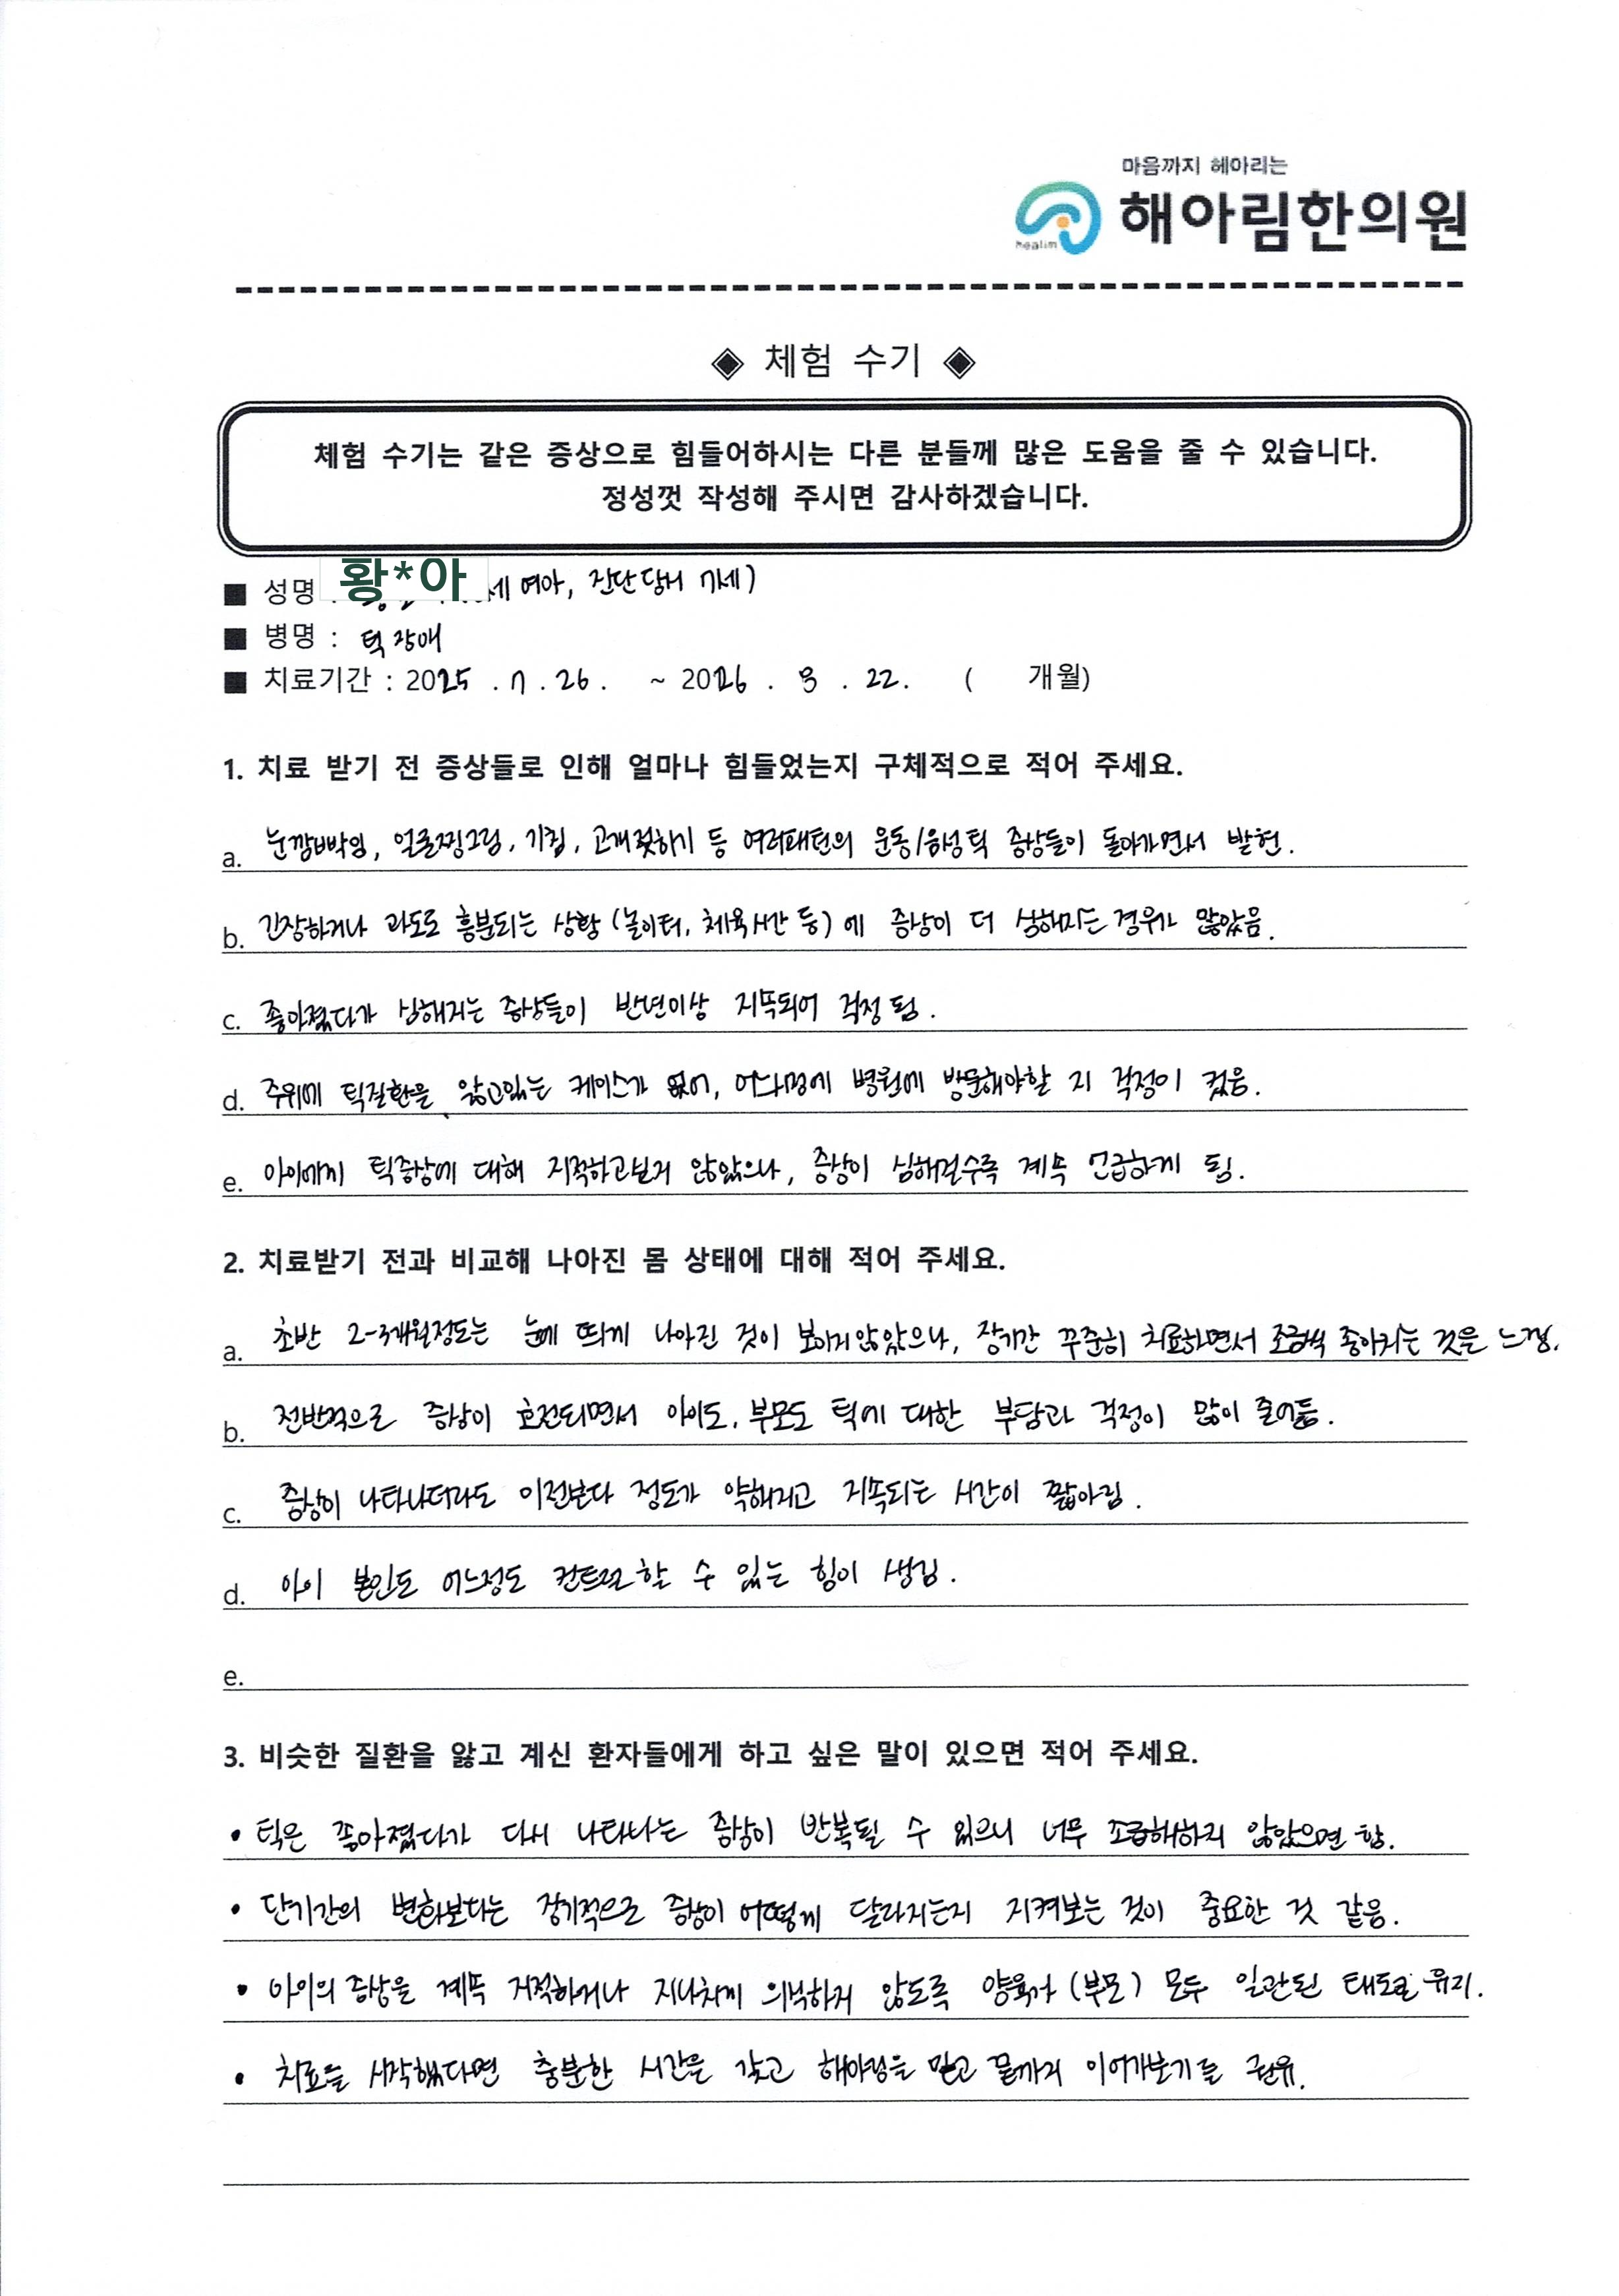 마음까지 헤아리는
해아림한의원
healim
◈ 체험 수기 ◈
체험 수기는 같은 증상으로 힘들어하시는 다른 분들께 많은 도움을 줄 수 있습니다.
정성껏 작성해 주시면 감사하겠습니다.
■ 성명 : 황*아 세 여아, 진단당시 7세)
■ 병명 : 틱장애
■ 치료기간 : 2025 . 7 . 26 . ~ 2026 . 3 . 22 . ( 개월)
1. 치료 받기 전 증상들로 인해 얼마나 힘들었는지 구체적으로 적어 주세요.
a. 눈깜빡임, 얼굴찡그림, 기침, 고개젖히기 등 여러패턴의 운동/음성틱 증상들이 돌아가면서 발현.
b. 긴장하거나 과도로 흥분되는 상황 (놀이터, 체육시간 등) 에 증상이 더 심해지는 경우가 많았음.
c. 좋아졌다가 심해지는 증상들이 반년이상 지속되어 걱정 됨.
d. 주위에 틱질환을 앓고있는 케이스가 없어, 어느시점에 병원에 방문해야할 지 걱정이 컸음.
e. 아이에게 틱증상에 대해 지적하고보지 않았으나, 증상이 심해질수록 계속 언급하게 됨.
2. 치료받기 전과 비교해 나아진 몸 상태에 대해 적어 주세요.
a. 초반 2-3개월정도는 눈에 띄게 나아진 것이 보이지않았으나, 장기간 꾸준히 치료하면서 조금씩 좋아지는 것을 느낌.
b. 전반적으로 증상이 호전되면서 아이도, 부모도 틱에 대한 부담과 걱정이 많이 줄어듦.
c. 증상이 나타나더라도 이전보다 정도가 약해지고 지속되는 시간이 짧아짐.
d. 아이 본인도 어느정도 컨트롤할 수 있는 힘이 생김.
e.
3. 비슷한 질환을 앓고 계신 환자들에게 하고 싶은 말이 있으면 적어 주세요.
• 틱은 좋아졌다가 다시 나타나는 증상이 반복될 수 있으니 너무 조급해하지 않았으면 함.
• 단기간의 변화보다는 장기적으로 증상이 어떻게 달라지는지 지켜보는 것이 중요한 것 같음.
• 아이의 증상을 계속 지적하거나 지나치게 의식하지 않도록 양육자 (부모) 모두 일관된 태도로 유지.
• 치료를 시작했다면 충분한 시간을 갖고 해아림을 믿고 끝까지 이어가보기를 권유.